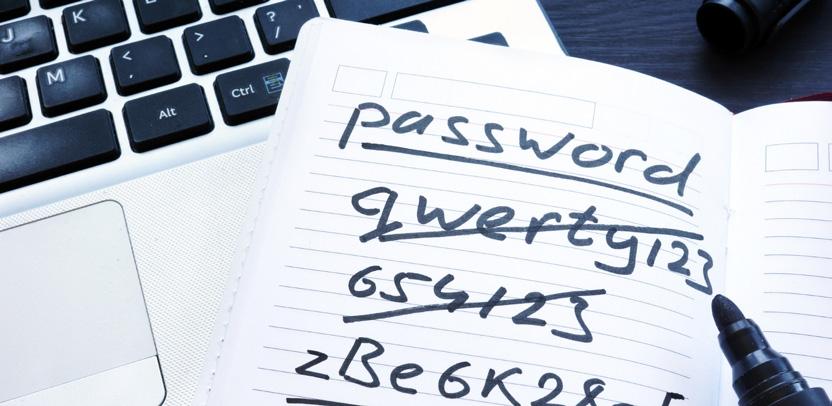 J
K
M
<
,
>
.
?
/
Alt
Ctrl
password
qwerty123
654123